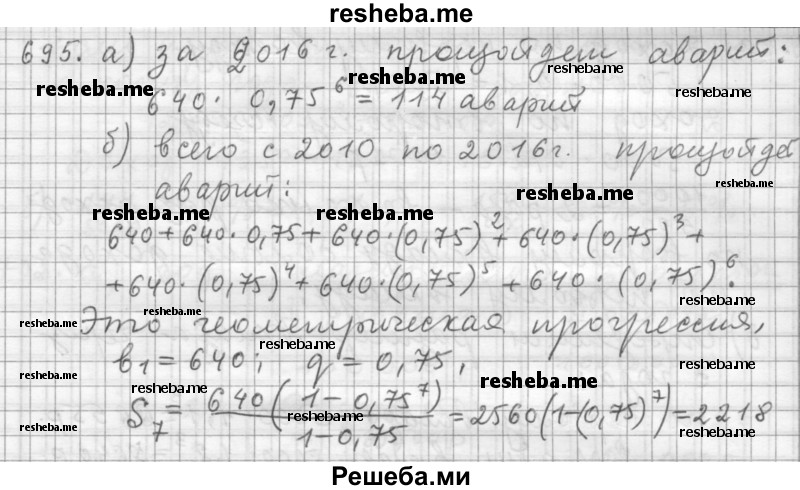 resheba.me
695. а) за 2016 г. пройдет аварий:
resheba.me resheba.me resheba.me resheba.me
640 · 0,75^6 = 114 аварий
б) всего с 2010 по 2016г.
resheba.me resheba.me
аварий:
resheba.me resheba.me
640 + 640 · 0,75 + 640 · (0,75)^2 + 640 · (0,75)^3 +
+ 640 · (0,75)^4 + 640 · (0,75)^5 + 640 · (0,75)^6.
resheba.me resheba.me resheba.me
Это геометрическая прогрессия,
resheba.me
b1 = 640; q = 0,75,
resheba.me resheba.me resheba.me resheba.me
S7 = 640(1 - 0,75^7) / 1 - 0,75 = 2560(1-(0,75)^7) = 2218
resheba.me resheba.me resheba.me
Решеба.ми